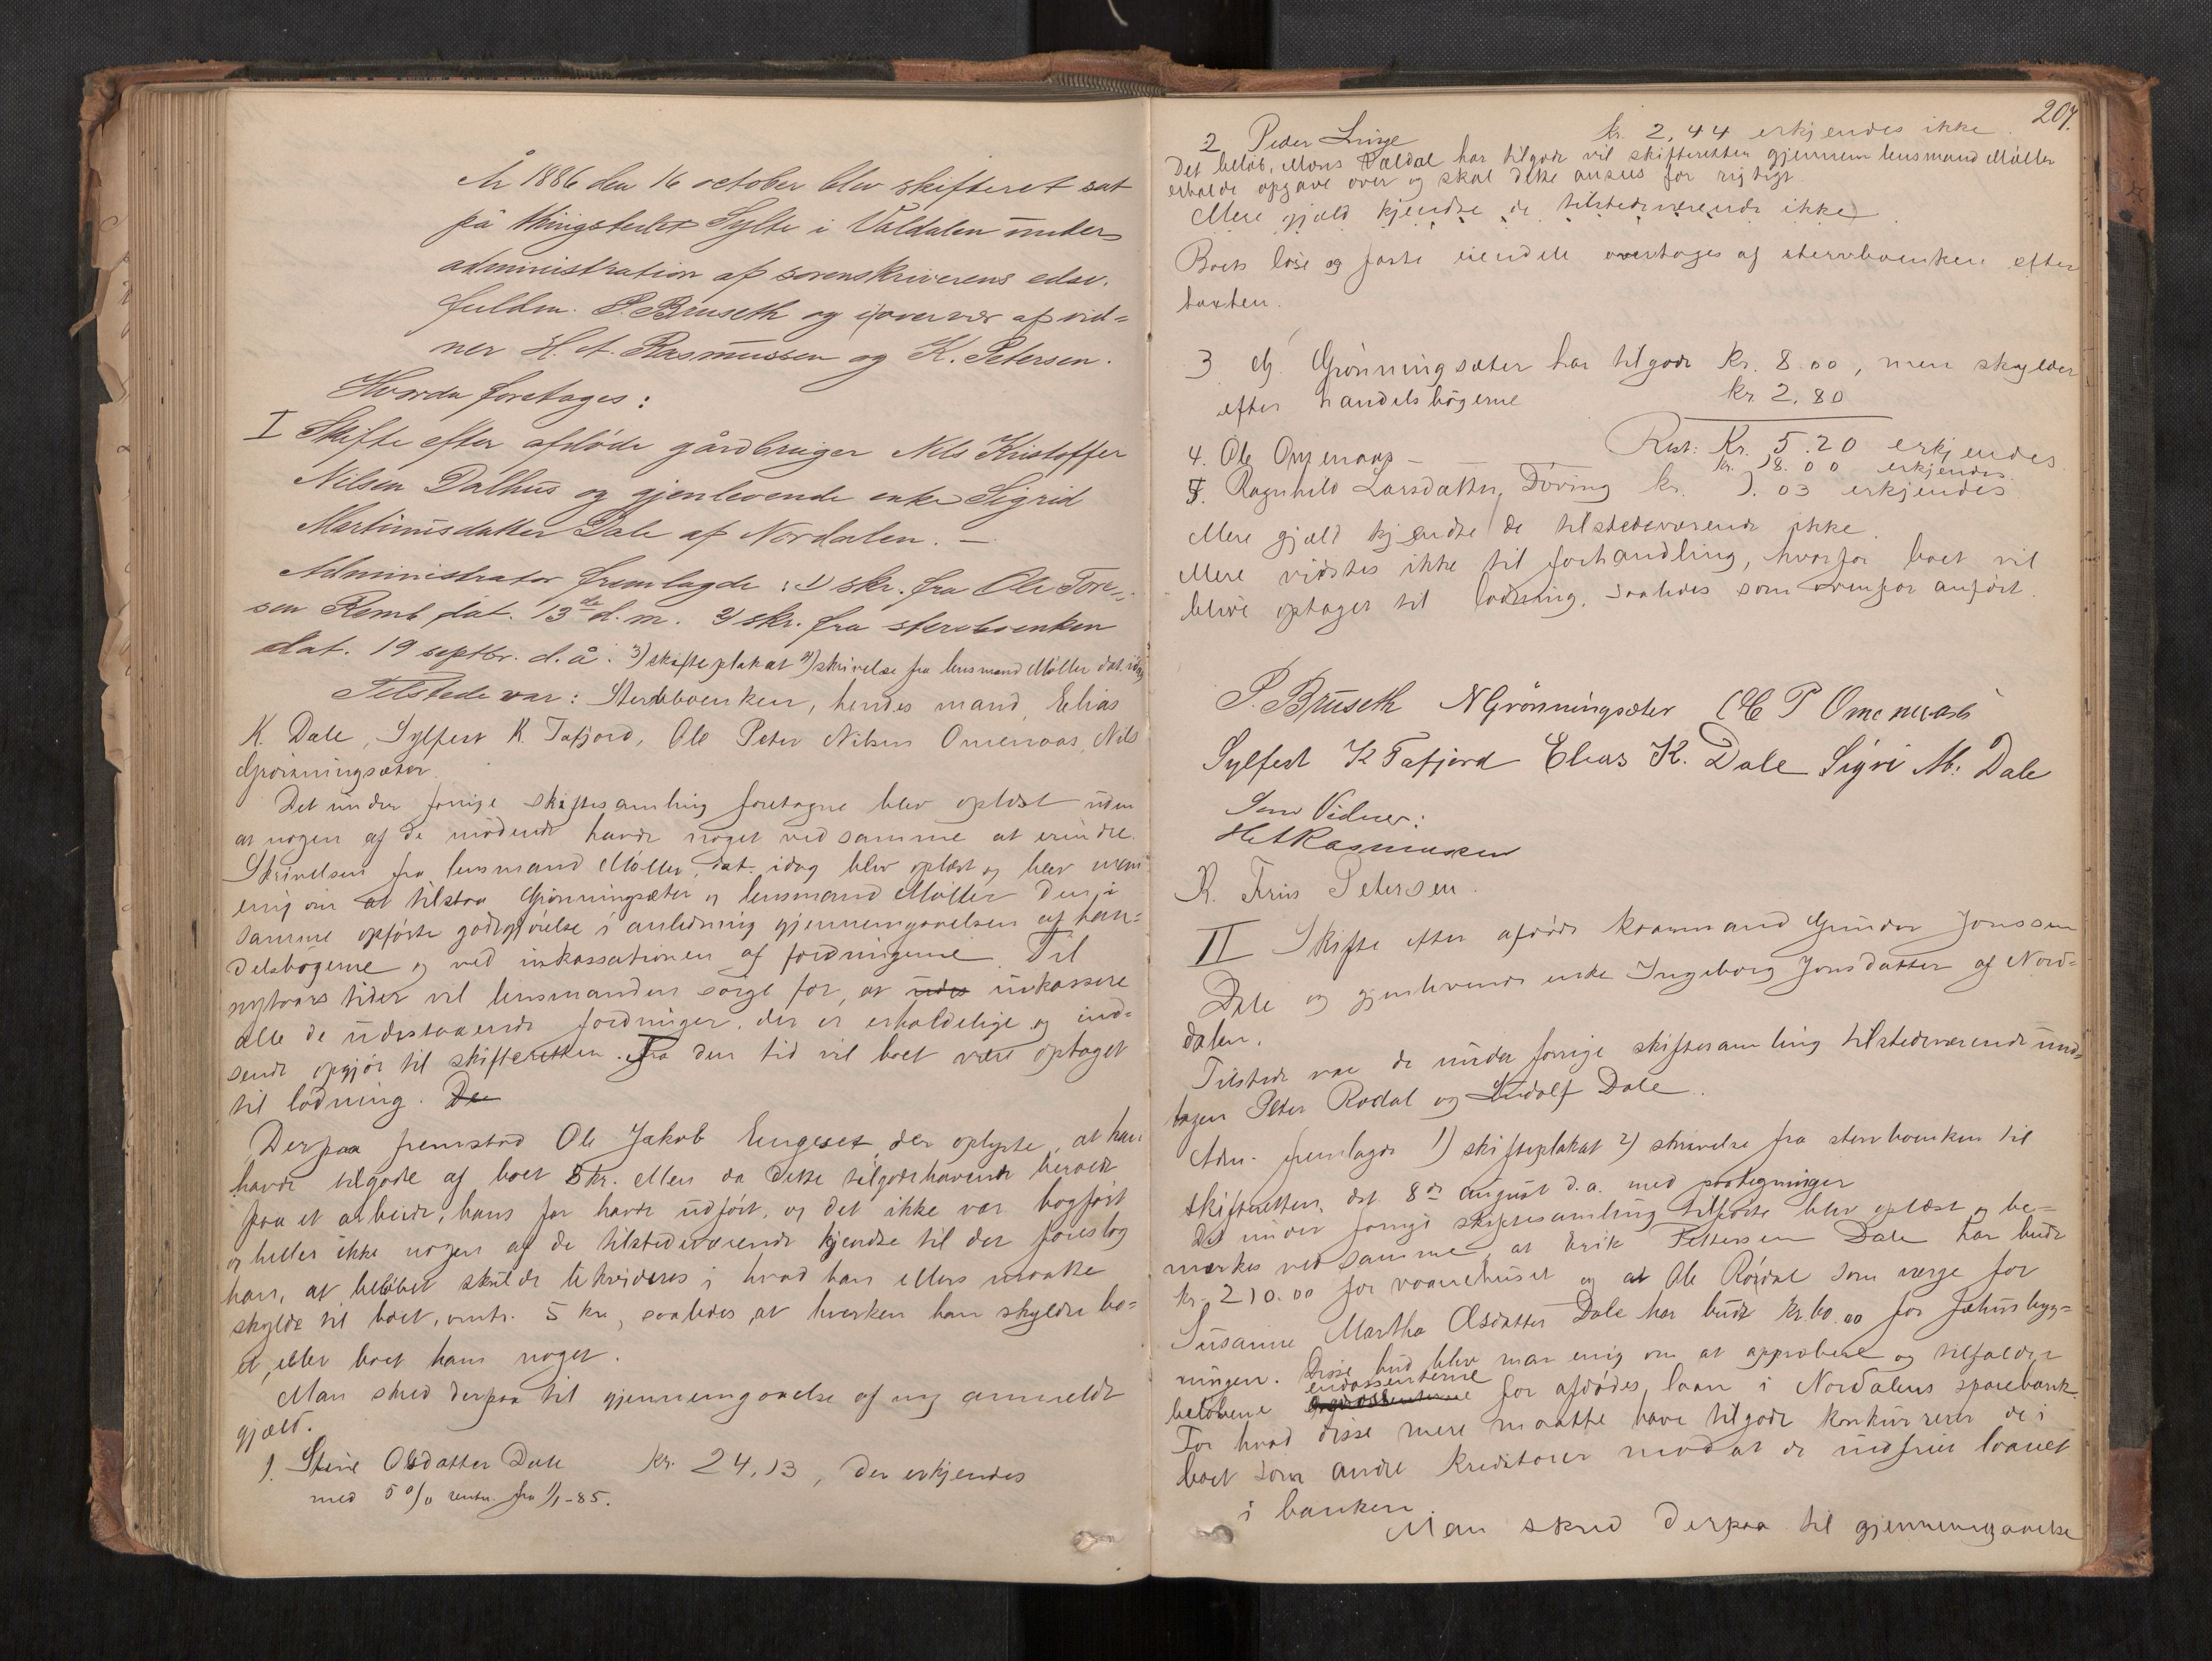 År 1886 den 16 october blev skifteret sat
på thingstedet Sylte i Valdalen under
administration af sorenskriverens edsv.
fuldm. P. Bruseth og i overvær af vid-
ner H. A. Rasmussen og K. Petersen.
Hvorda foretoges:
I Skifte efter afdøde gårdbruger Nils Kristoffer
Nilsen Dalhus og gjenlevende enke Sigrid
Martinusdatter Dale af Nordalen. —
Administrator fremlagde: 1) skr. fra Ole Tore-
sen Remb dat. 13de d. m. 2) skr. fra stervboenken
dat. 19 septbr. d. å. 3) skifteplakat 4) skrivelse fra lensmand Møller dat. idag
Tilstede var: Stervboenken, hendes mand, Elias
K. Dale, Sylfest K. Tafjord, Ole Peter Nilsen Omenaas, Nils
Grønningsæter.
Det under forrige skiftesamling foretagne blev oplæst uden
at nogen af de mødende havde noget ved samme at erindre.
Skrivelsen fra lensmand Møller, dat. idag blev oplæst og blev man
enig om at tilstaa Grønningsæter og lensmand Møller den i
samme opførte godtgjørelse i anledning gjennemgaaelsen af han-
delsbøgerne og ved inkassationen af fordringerne. Til
nytaars tider vil lensmanden sørge for, at udes inkassere
alle de udestaaende fordringer, der er erholdelige og ind-
sende opgjør til skifteretten. Fra den tid vil boet være optaget
til lodning. De
Derpaa fremstod Ole Jakob Engeset, der oplyste, at han
havde tilgode af boet 5 kr. Men da dette tilgodehavende beroede
paa et arbeide, hans far havde udført, og det ikke var bogført
og heller ikke nogen af de tilstedeværende kjendte til det foreslog
han, at beløbet skulde likvideres i hvad han ellers maatte
skylde til boet, omtr. 5 kr, saaledes, at hverken han skyldte bo-
et, eller boet ham noget.
Man skred derpaa til gjennemgaaelse af ny anmeldt
gjæld.
1. Stine Olsdatter Dale kr. 24,13, der erkjendes
med 5 % rente fra 1/1-85.
207.
2 Peder Linge kr. 2,44 erkjendes ikke.
Det beløb, Mons Valdal har tilgode vil skifteretten gjennem lensmand Møller
erholde opgave over og skal dette ansees for rigtigt.
Mere gjæld kjendte de tilstedeværende ikke.
Boets løse og faste eiendele overtages af stervboenken efter
taxten.
3 N. Grønningsæter har tilgode kr. 8.00, men skylder
efter handelsbøgerne kr. 2,80
Rest: Kr. 5.20 erkjendes
4. Ole Omenaas — kr. 18.00 erkjendes.
5. Ragnhild Larsdatter Døving kr. 7.03 erkjendes
Mere gjæld kjendte de tilstedeværende ikke.
Mere vidstes ikke til forhandling, hvorfor boet vil
blive optaget til lodning, saaledes som ovenfor anført.
P. Bruseth N Grönningsæter Ole P Omenaas
Sylfest K Tafjord Elias K. Dale Sigri M. Dale
Som Vidner:
H A Rasmussen
K. Friis Petersen.
II Skifte efter afdøde kaarmand Gunder Jonssen
Dale og gjenlevende enke Ingeborg Jonsdatter af Nord-
dalen.
Tilstede var de under forrige skiftesamling tilstedeværende und-
tagen Peter Rødal og Ludolf Dale.
Adm. fremlagde 1) skifteplakat 2) skrivelse fra stervboenken til
skifteretten, dat. 8de august d. a. med paategninger
Det under forrige skiftesamling tilførte blev oplæst og be-
mærkes ved samme, at Erik Pettersen Dale har budt
kr. 210.00 for vaanehuset og at Ole Rødal som verge for
Susanne Martha Olsdatter Dale har budt kr. 60.00 for fæhusbyg-
ningen. Disse bud blev man enig om at approbere og tilfalder
beløbene endossenterne for afdødes laan i Nordalens sparebank.
For hvad disse mere maatte have tilgode konkurrerer de i
boet som andre kreditorer mod at de indfrier laanet
i banken.
Man skred derpaa til gjennemgaaelse